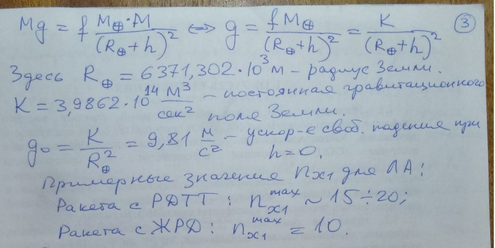 Mg = f M⊕·M / (R⊕+h)² ⇔ g = f M⊕ / (R⊕+h)² = K / (R⊕+h)²
③
Здесь R⊕ = 6371,302·10³ м – радиус Земли.
K = 3,9862·10¹⁴ м³/сек² – постоянная гравитационного
поля Земли.
g₀ = K / R⊕² = 9,81 м/с² – ускор-е своб. падения при
h=0.
Примерные значения nx1 для ЛА:
Ракета с РДТТ: nx1 max ~ 15÷20;
Ракета с ЖРД: nx1 max = 10.